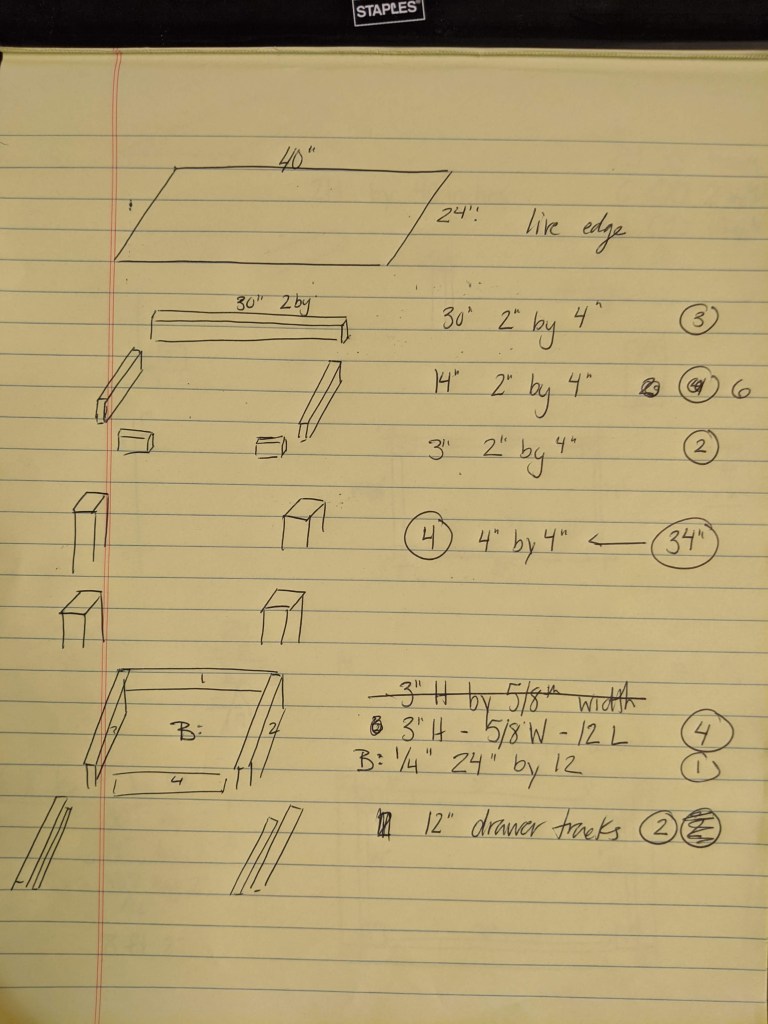 STAPLES
40"
24" live edge
30" 2 by
30" 2" by 4" 3
14" 2" by 4" 6
3" 2" by 4" 2
4 4" by 4" ← 34"
3" H by 5/8" width
1
3 B: 2
3" H - 5/8 W - 12 L 4
B: 1/4" 24" by 12 1
4
12" drawer tracks 2